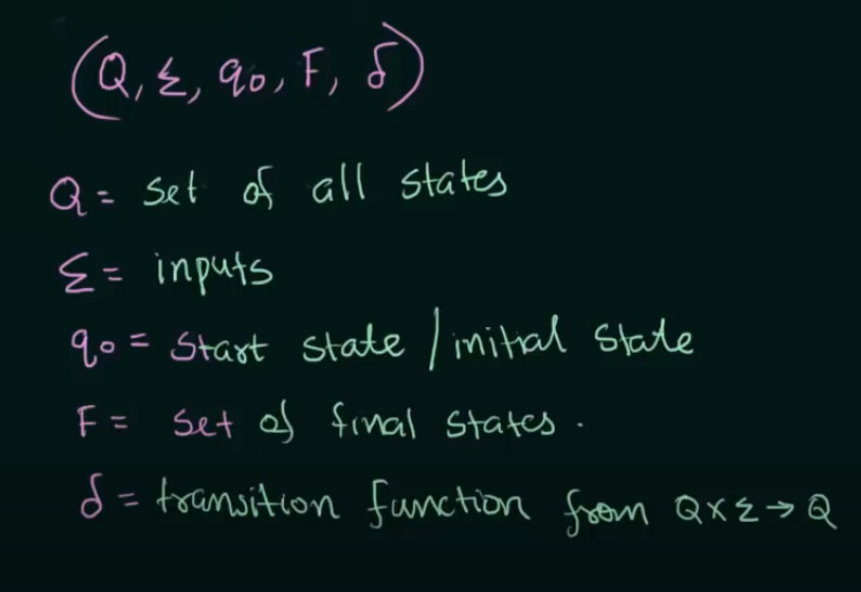 (Q, Σ, q0, F, δ)
Q = set of all states
Σ = inputs
q0 = start state / initial state
F = set of final states.
δ = transition function from Q x Σ → Q